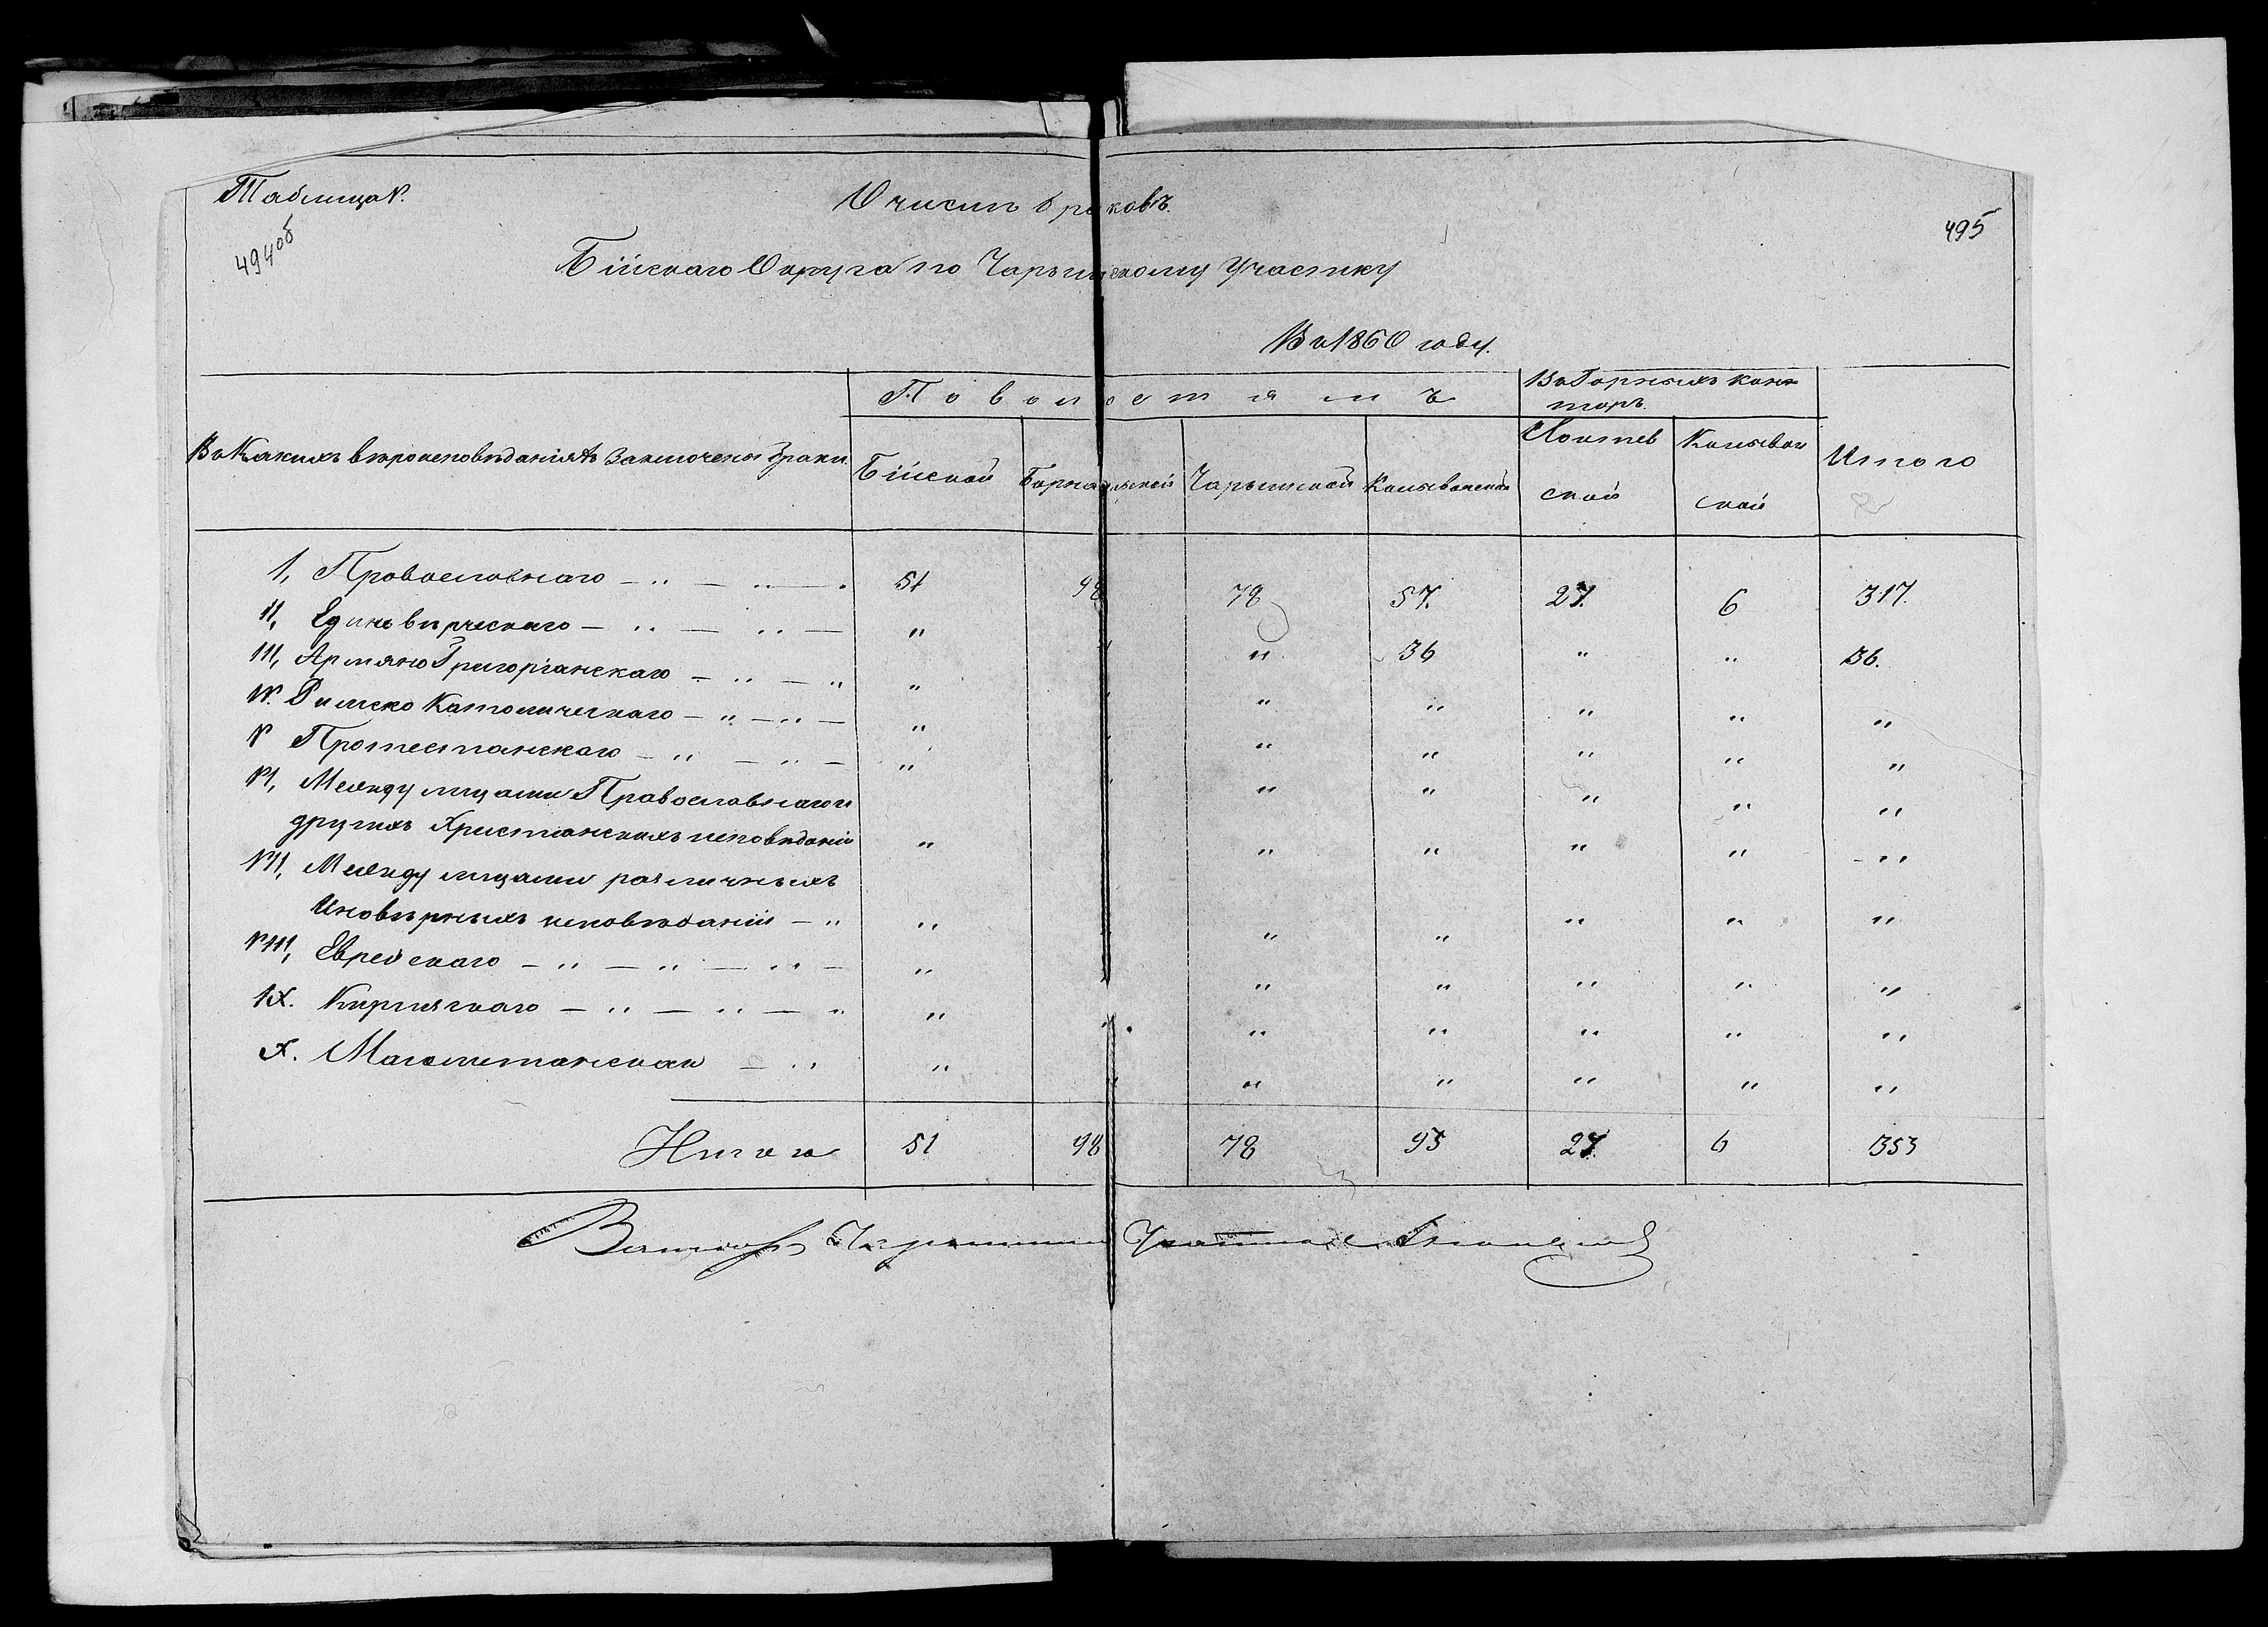 Таблица V.
494об
495
О числѣ браковъ.
Бійскаго Округа по Чарышскому Участку
Въ 1860 году.
Въ Какихъ вѣроисповѣданіяхъ Заключены браки.
По волостямъ
Въ Горныхъ кон
торъ.
Итого
Бійской Барнаульской Чарышской Колыванской
Локтев
ской
Колыван
ской
1, Провославнаго — „ — „ — 51 98 78 57. 27. 6 317.
11, Единовѣрческаго — „ — „ — „ „ „ 36 „ „ 36.
111, Армяно Григоріанскаго — „ — „ „ „ „ „ „ „ „
IV. Римско Католическаго — „ — „ — „ „ „ „ „ „ „
V Протестанскаго — „ — „ — „ „ „ „ „ „ „
VI, Между лицами Православнаго и
другихъ Христіанскихъ исповѣданій „ „ „ „ „ „
VII, Между лицами различныхъ
Иновѣрныхъ исповѣданій — „ „ „ „ „ „ „
VIII, Еврейскаго — „ — „ — „ — „ „ „ „ „ „
IX. Киргизскаго — „ — „ — „ „ „ „ „ „ „ „
X. Магометанскаго — „ „ „ „ „ „ „ „
Итого 51 98 78 93 27. 6 353